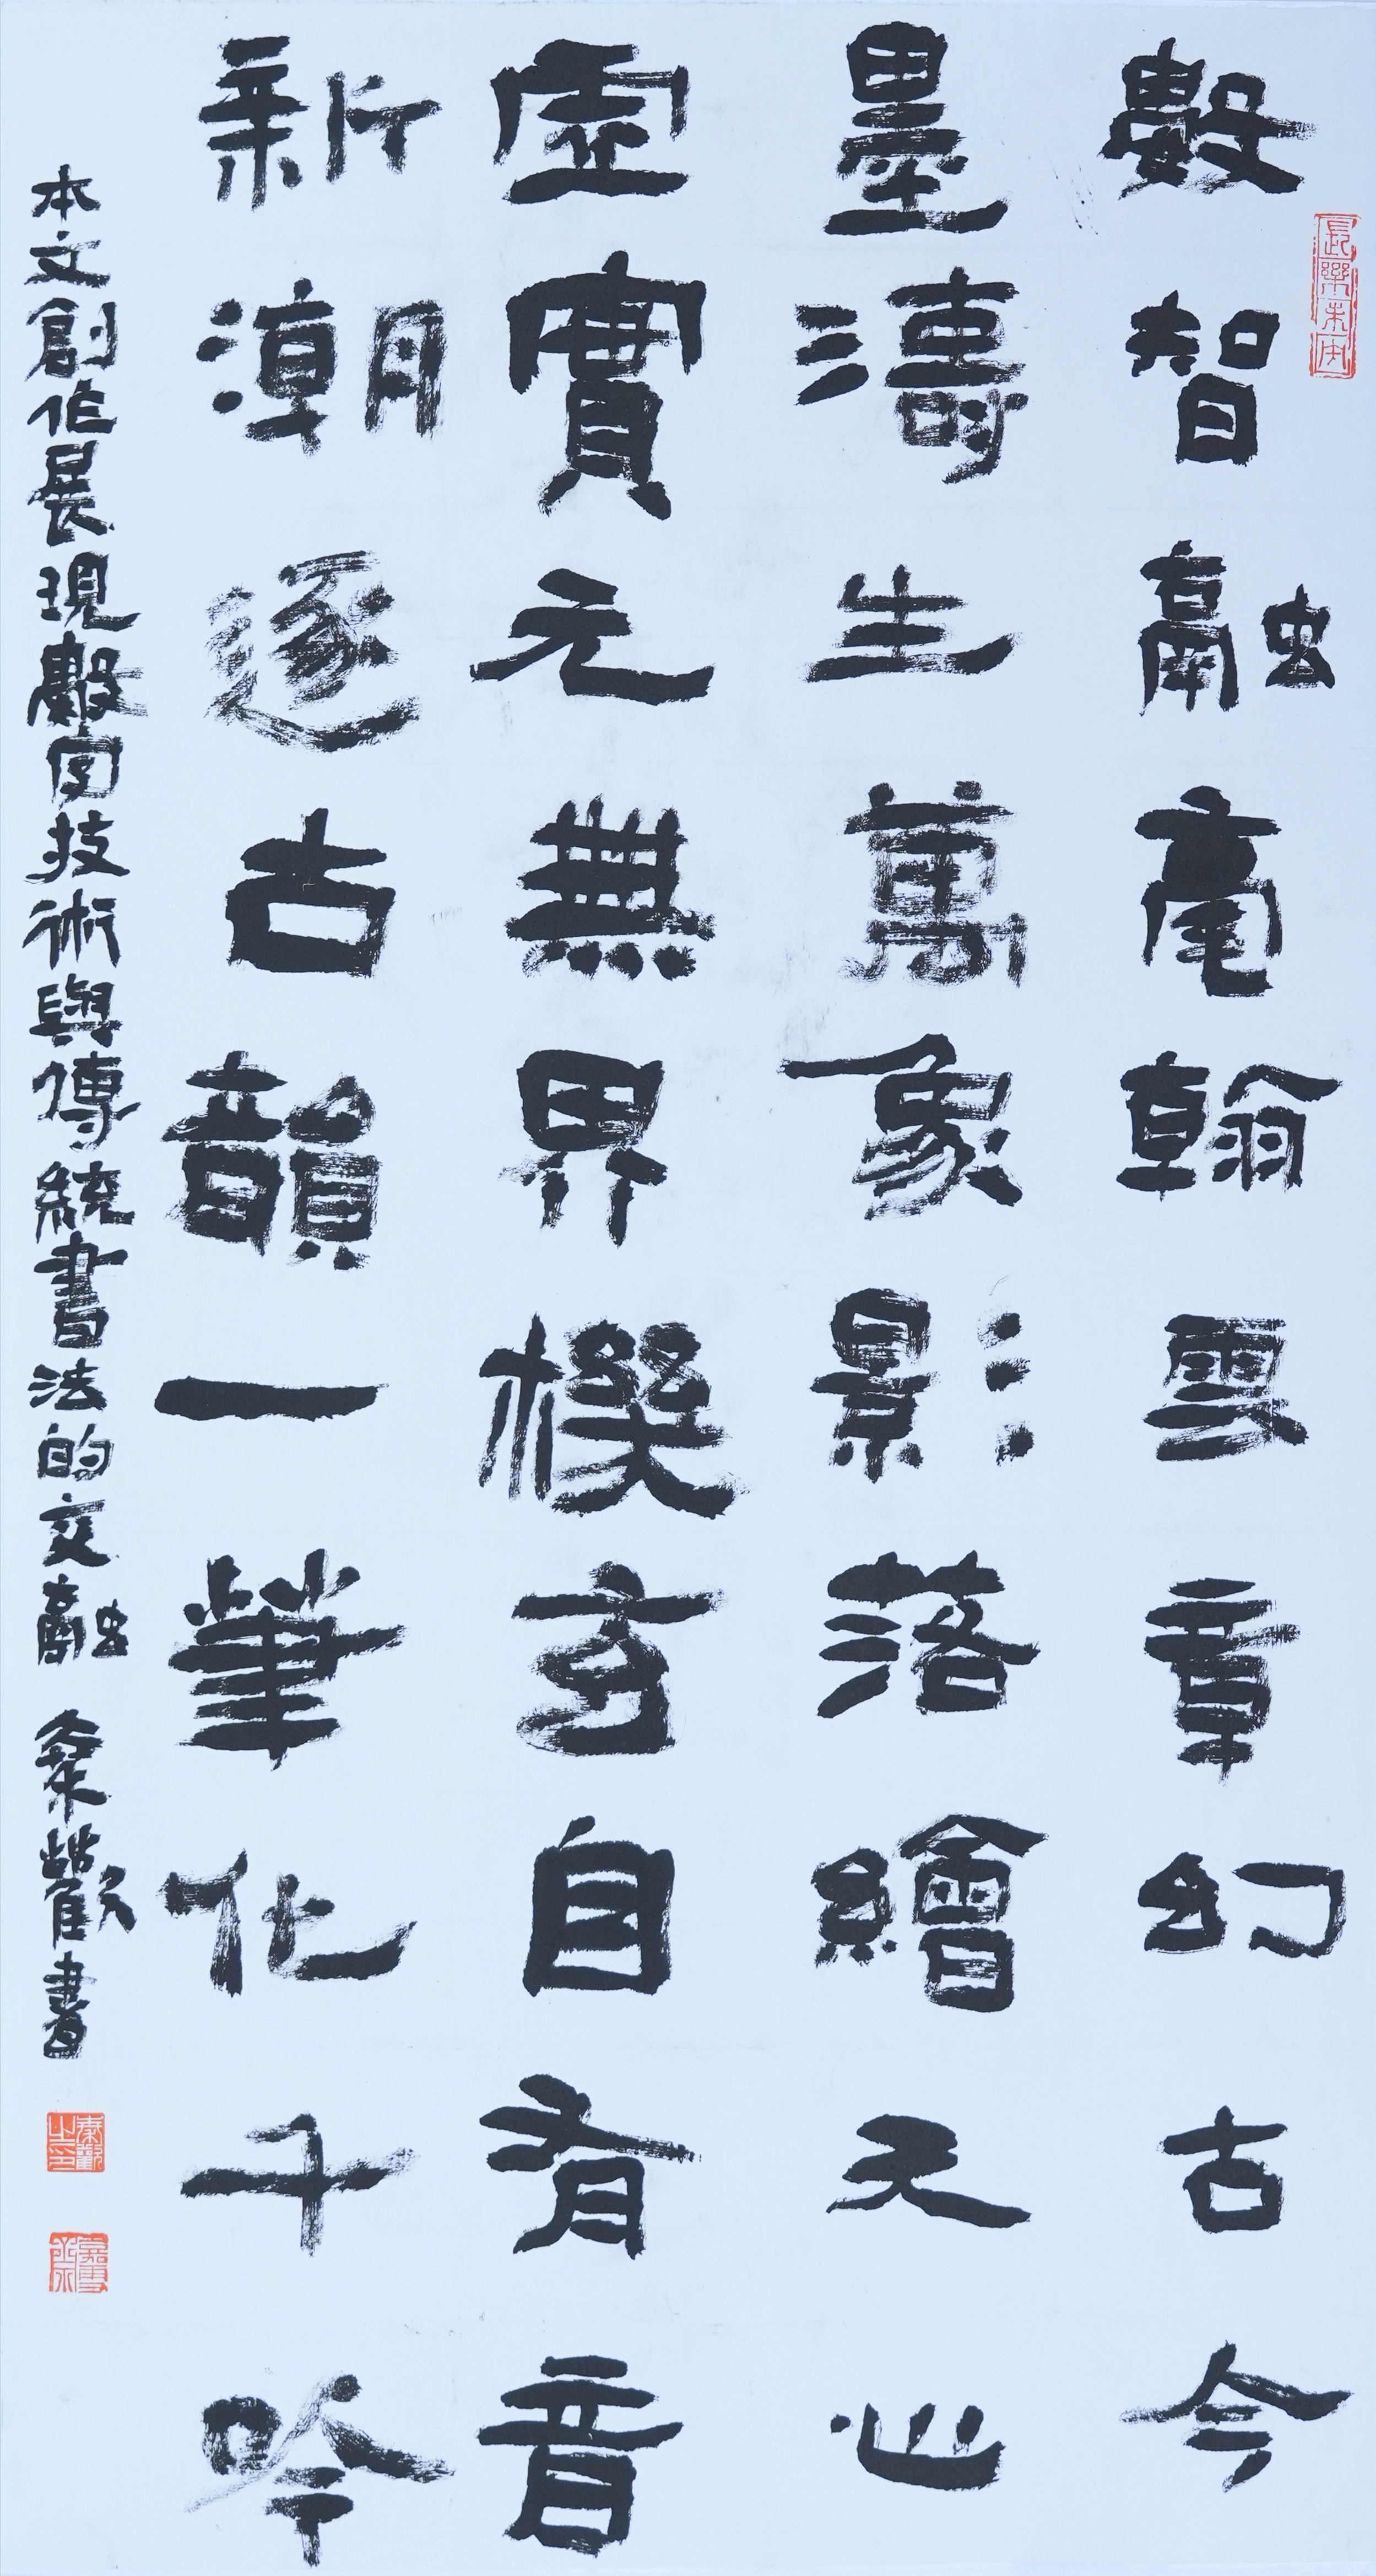 長樂未央
數智融毫翰雲章幻古今
墨濤生萬象影落繪天心
虛實元無界機玄自有音
新潮逐古韻一筆化千吟
本文創作展現數字技術與傳統書法的交融 秦歡書
秦歡之印